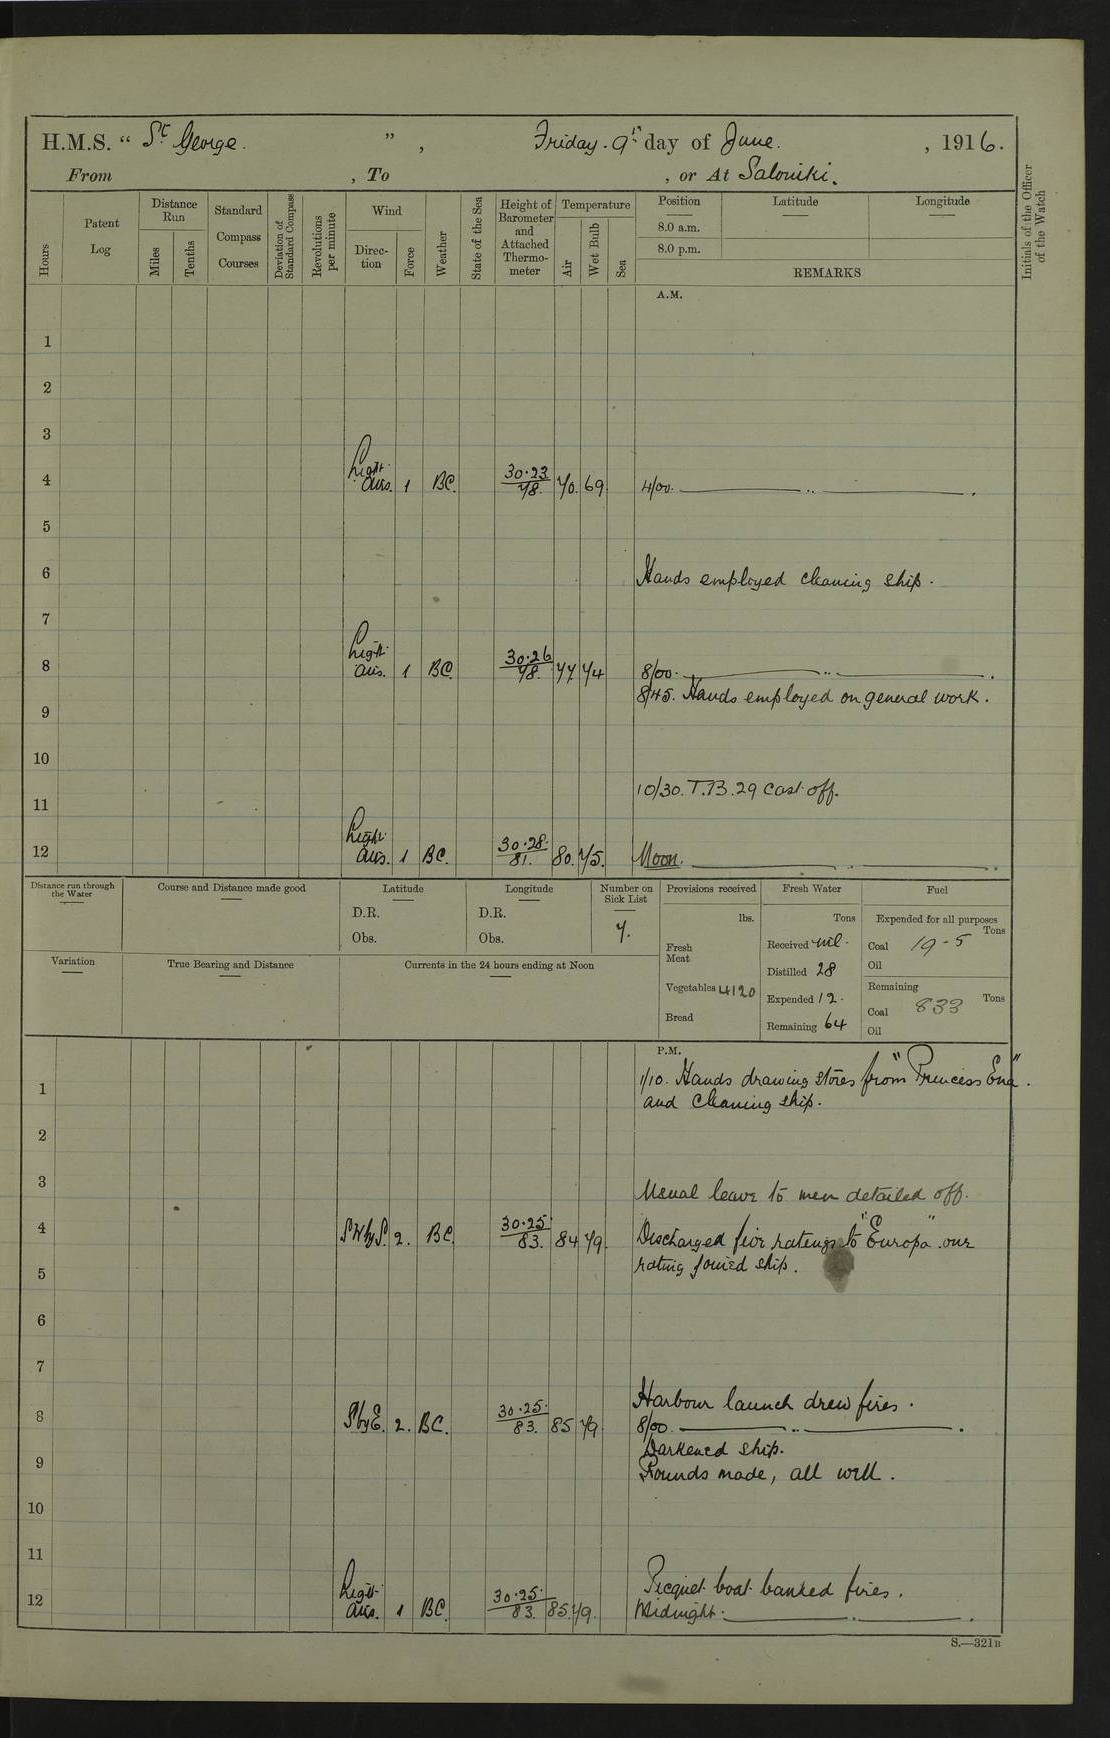 H.M.S. “ St George. ” , Friday. 9th day of June. , 1916.
From , To , or At Saloniki.
Hours
Patent Log
Distance Run
Miles
Tenths
Standard Compass Courses
Deviation of Standard Compass
Revolutions per minute
Wind
Direction
Force
Weather
State of the Sea
Height of Barometer and Attached Thermometer
Temperature
Air
Wet Bulb
Sea
Position
Latitude
Longitude
8.0 a.m.
8.0 p.m.
REMARKS
Initials of the Officer of the Watch
A.M.
1
2
3
4 Light airs. 1 BC. 30.23 78. 70. 69. 4/00. ——— .. ——— .
5
6 Hands employed cleaning ship.
7
8 Light airs. 1 BC. 30.26 78. 77 74 8/00. ——— .. ——— .
8/45. Hands employed on general work.
9
10
10/30. T.B. 29 cast off.
11
12 Light airs. 1 BC. 30.28. 81. 80. 75. Noon. ——— .. ——— ..
Distance run through the Water
Course and Distance made good
Latitude
D.R.
Obs.
Longitude
D.R.
Obs.
Number on Sick List
7.
Provisions received
lbs.
Fresh Meat
Vegetables 4120
Bread
Fresh Water
Tons
Received nil.
Distilled 28
Expended 12.
Remaining 64
Fuel
Expended for all purposes
Tons
Coal 19-5
Oil
Remaining
Tons
Coal 833
Oil
Variation
True Bearing and Distance
Currents in the 24 hours ending at Noon
P.M.
1 1/10. Hands drawing stores from "Princess Ena".
and cleaning ship.
2
3 Usual leave to men detailed off.
4 SWbyS. 2. BC. 30.25 83. 84 79. Discharged five ratings to "Europa". one
rating joined ship.
5
6
7
Harbour launch drew fires.
8 SbyE. 2. BC. 30.25. 83. 85 79. 8/00. ——— .. ——— .
Darkened ship.
9 Rounds made, all well.
10
11
Picquet boat banked fires.
12 Light airs. 1 BC. 30.25. 83. 85. 79. Midnight. ——— . ——— .
S.—321B